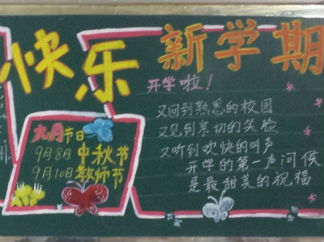 快乐
新学期
开学啦！
又回到熟悉的校园
又见到亲切的笑脸
又听到欢快的叫声
开学的第一声问候
是最甜美的祝福
九月节日
9月8日 中秋节
9月10日 教师节